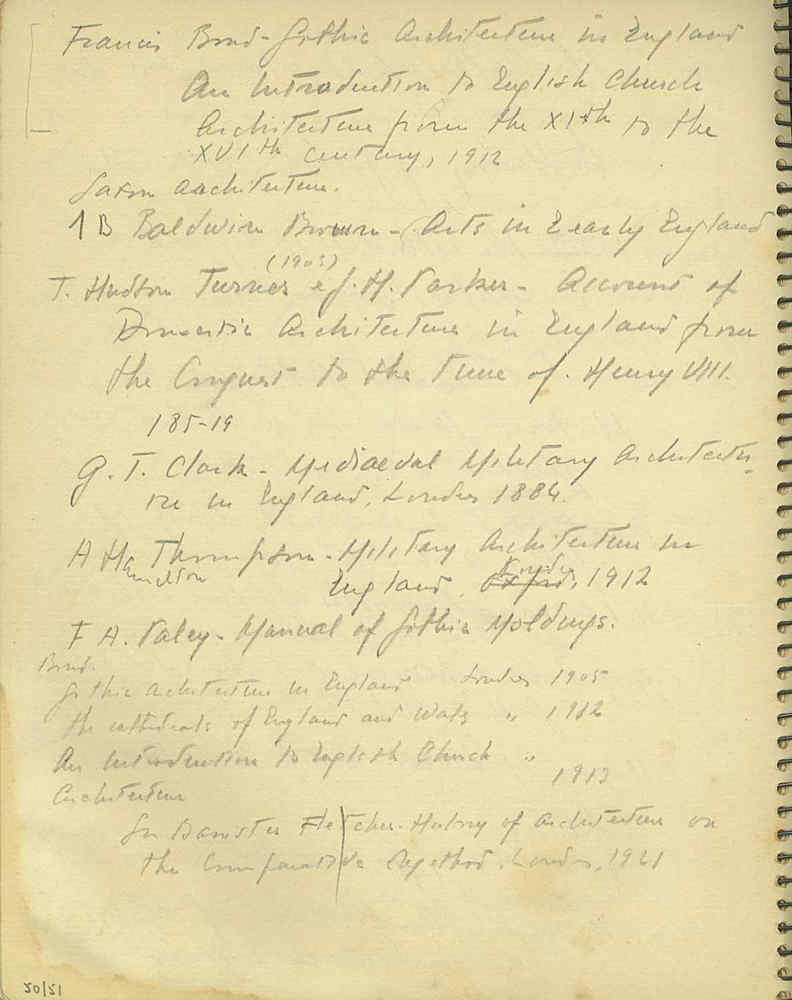 Francis Bond - Gothic Architecture in England
An Introduction to English Church
Architecture from the XIth to the
XVIth century, 1912
Saxon Architecture.
1 B Baldwin Brown - Arts in Early England
(1903)
T. Hudson Turner & J. H. Parker - Account of
Domestic Architecture in England from
the Conquest to the time of Henry VIII.
185-19
G. T. Clark - Mediaeval Military Architectu-
re in England, Londres 1884.
A Ha Thompson - Military Architecture in
milton
Londres
England, Oxford, 1912
F A. Paley - Manual of Gothic Moldings.
Bond.
Gothic Architecture in England Londres 1905
The cathedrals of England and Wales " 1912
An Introduction to English Church "
1913
Architecture
Sir Banister Fletcher - History of Architecture on
the Comparative Method. Londres, 1921
20/21